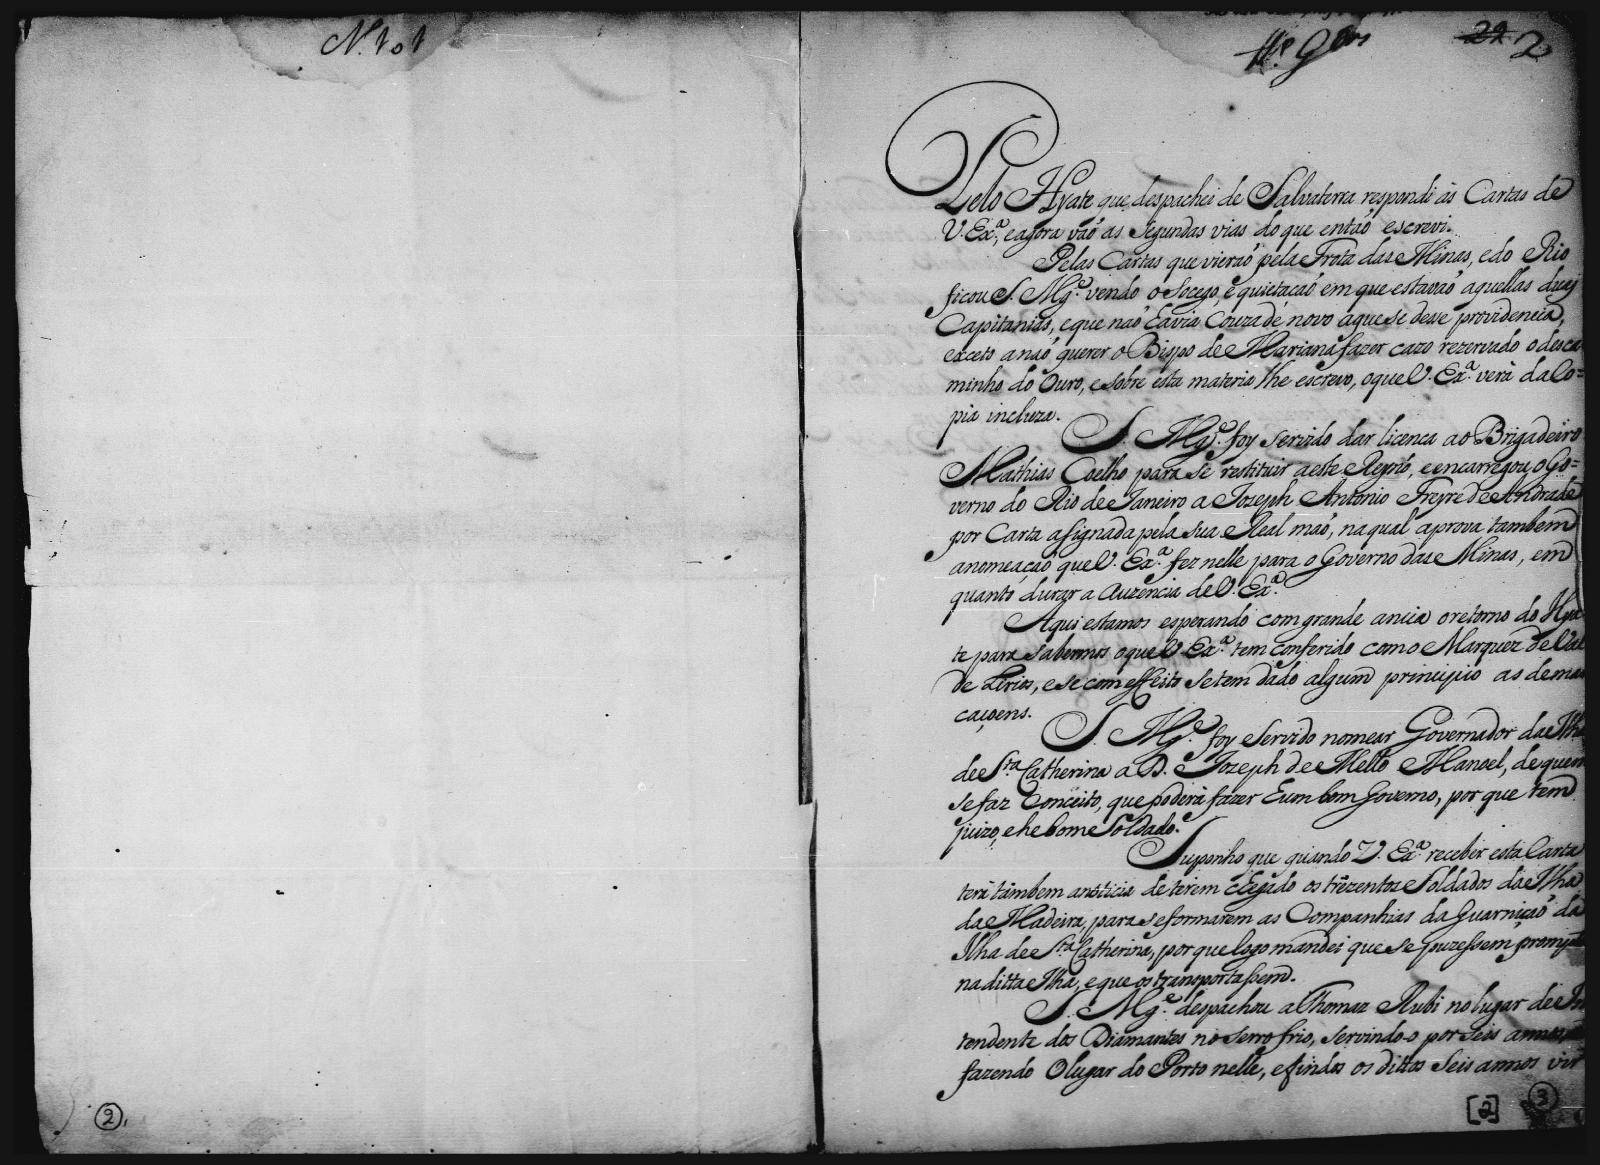 N.º 101
29 2
Pelo Hyate que despachei de Salvaterra respondi ás Cartas de
V. Ex.ª, e agora vaõ as segundas vias do que entaõ escrevi.
Pelas Cartas que vieraõ pela Frota das Minas, e do Rio
ficou S. Mg.e vendo o socego, e quietaçaõ em que estavaõ aquellas duas
Capitanias, e que naõ havia couza de novo a que se desse providencia,
exceto a naõ querer o Bispo de Mariana fazer cazo rezervado o desca
minho do Ouro, e sobre esta materia lhe escrevo, o que V. Ex.ª verá da Co=
pia incluza.
S. Mg.e foy servido dar licença ao Brigadeiro
Mathias Coelho para se restituir a este Reyno, e encarregou o Go=
verno do Rio de Janeiro a Jozeph Antonio Freyre de Andrade
por Carta asignada pela sua Real maõ, na qual aprova tambem
a nomeaçaõ que V. Ex.ª fez nelle para o Governo das Minas, em
quanto durar a auzencia de V. Ex.ª
Aqui estamos esperando com grande ancia o retorno do Hya
te para sabermos o que V. Ex.ª tem conferido com o Marquez de Val
de Lirios, e se com effeito se tem dado algum principio as demar
caçoens.
S. Mg.e foy servido nomear Governador da Ilha
de S.ta Catherina a D. Jozeph de Mello Manoel, de quem
se faz conceito, que poderá fazer hum bom Governo, por que tem
juizo, e he bom Soldado.
Suponho que quando V. Ex.ª receber esta Carta
terá tambem a noticia de terem chegado os trezentos Soldados da Ilha
da Madeira, para se formarem as Companhias da Guarniçaõ da
Ilha de S.ta Catherina, por que logo mandei que se puzessem promptos
na ditta Ilha, e que os transportassem.
S. Mg.e despachou a Thomaz Rubi no lugar de In
tendente dos Diamantes no Serro frio, servindo-o por seis annos,
fazendo o lugar do Porto nelle, e findos os dittos seis annos vir
2
[2]
3